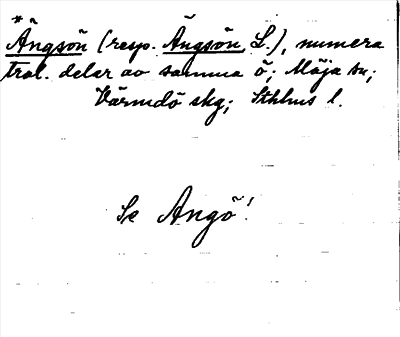 *Ängsön (resp. Ängsön, L.), numera
trol. delar av samma ö; Möja sn;
Värmdö skg; Sthlms l.
Se Angö!